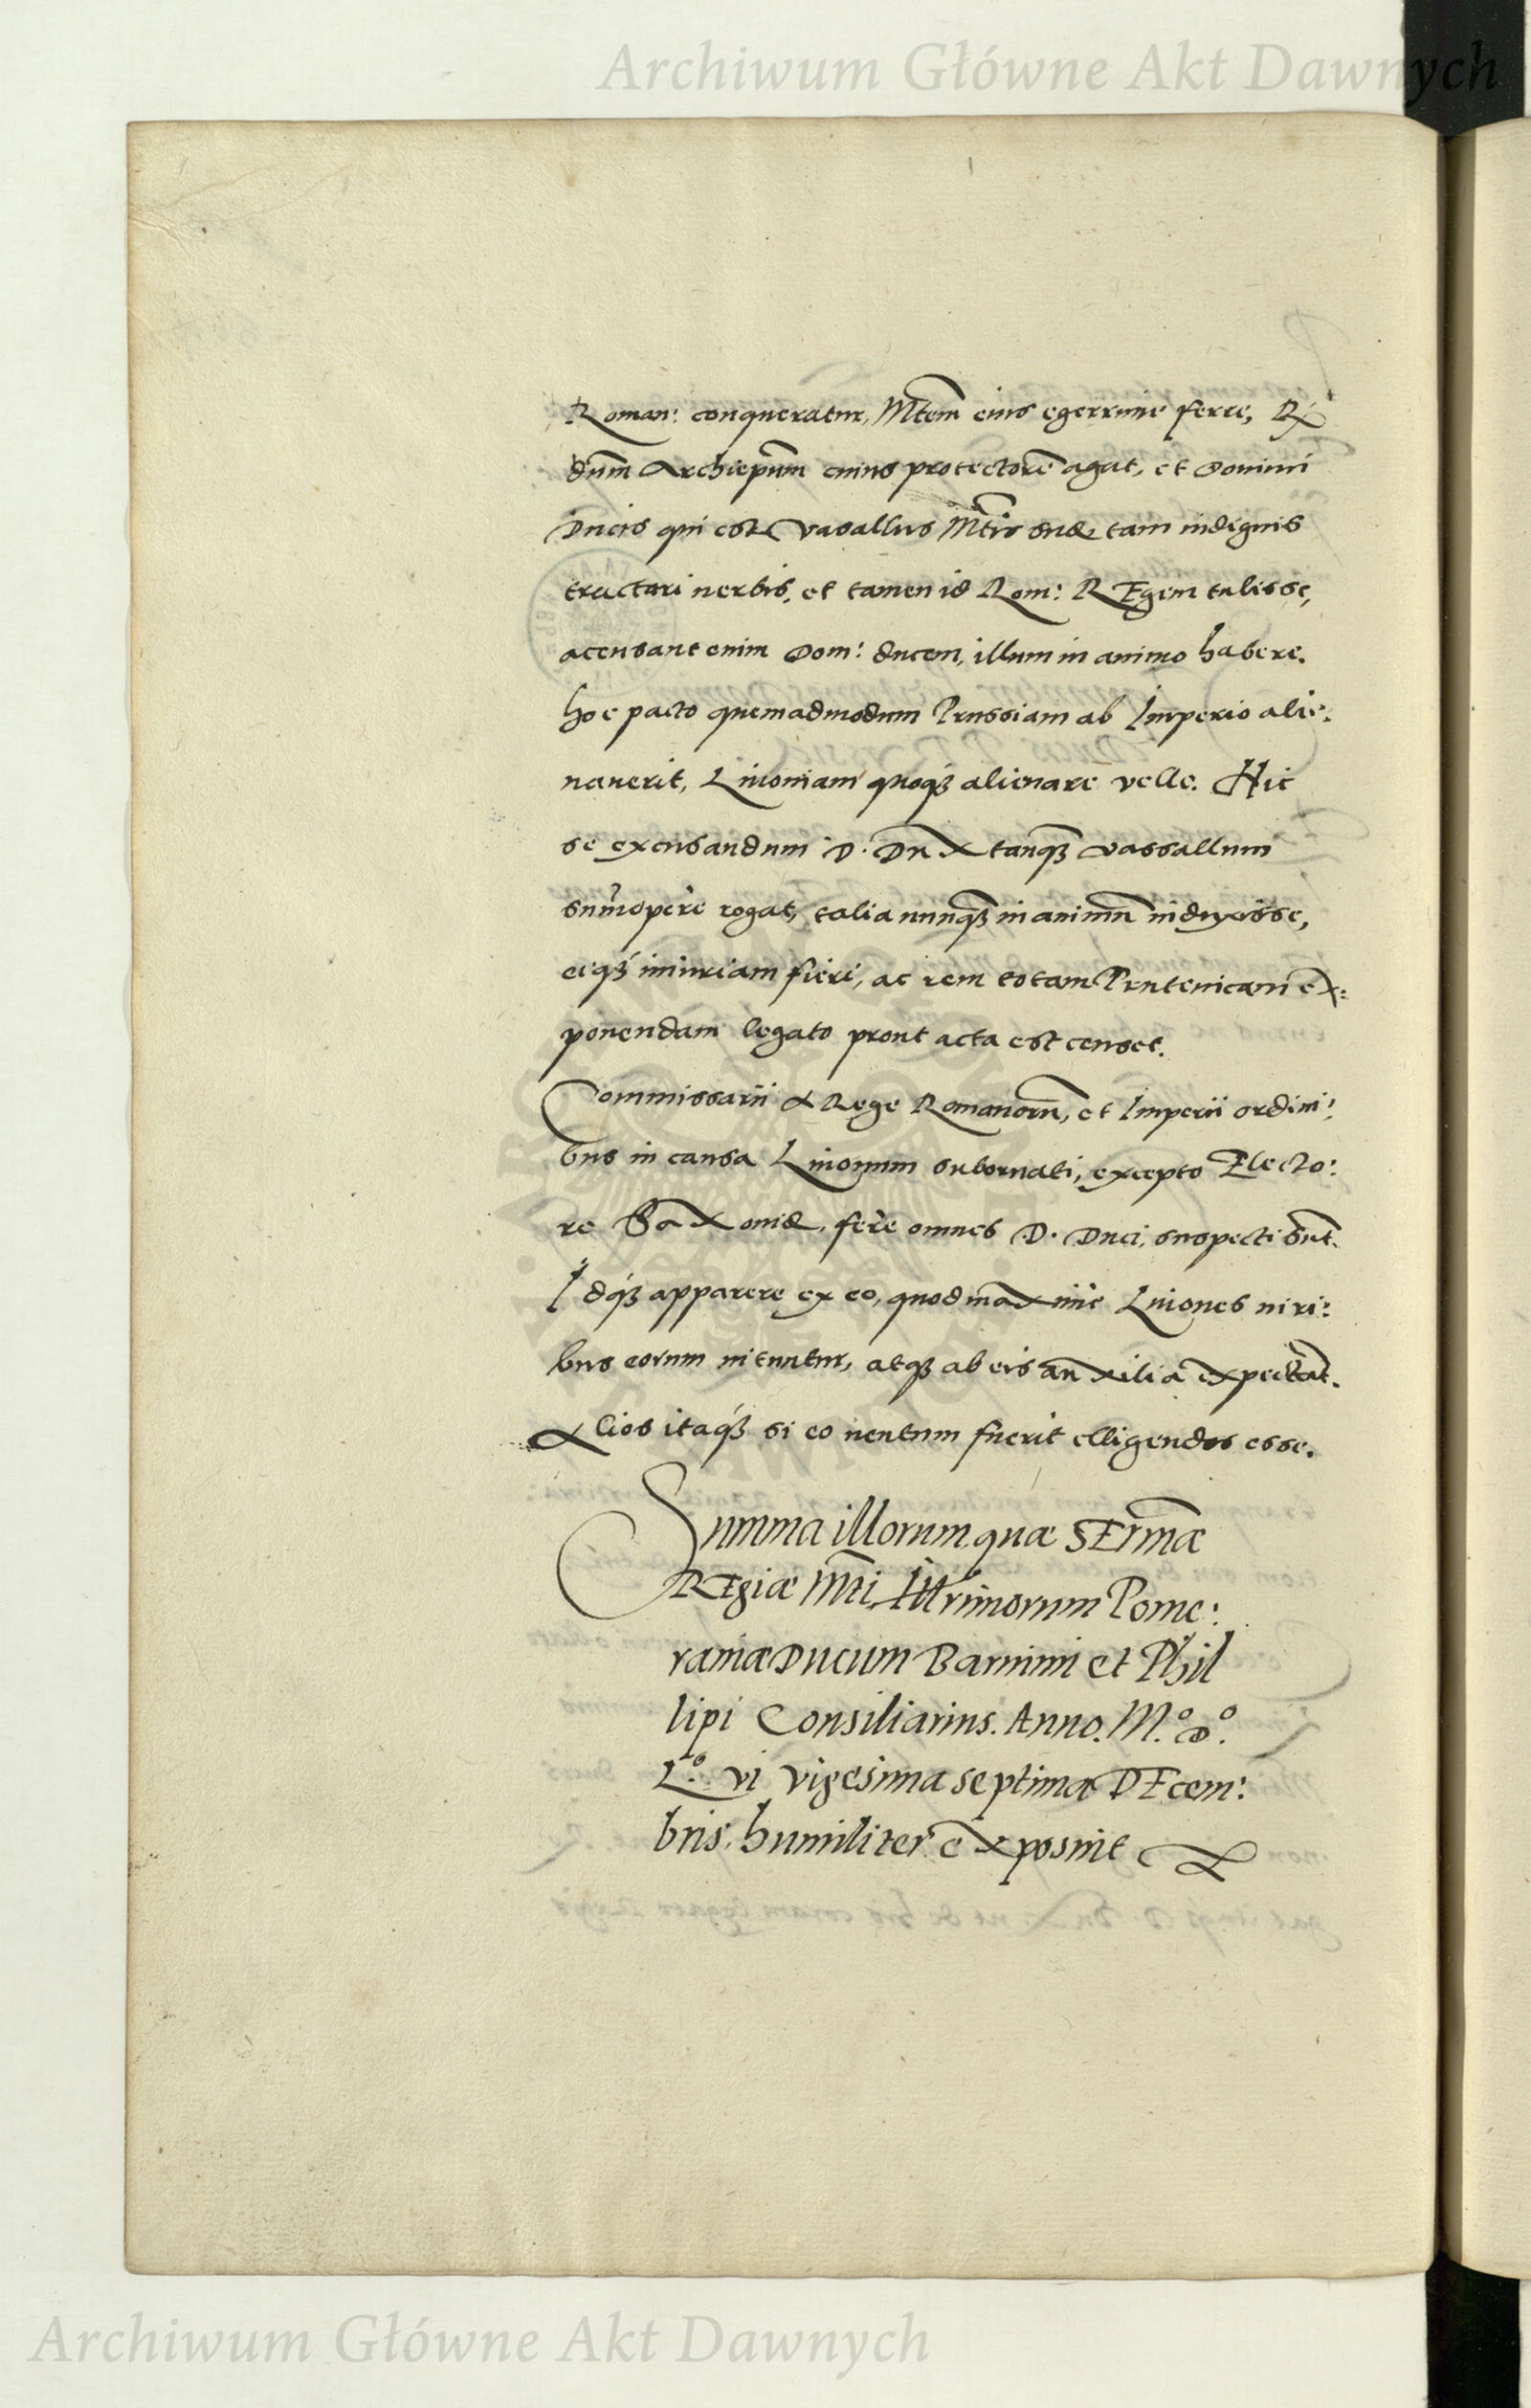 Archiwum Główne Akt Dawnych
Roman: conqueratur, Mtem eius egerrime ferre, R
dum Archiepum cuius protectore agat, et Domini
Ducis qui est Vasallus Mtis suæ tam indignis
tractari uerbis, et tamen id Rom: REgem tulisse,
accusant enim Dom: ducem, illum in animo habere.
hoc pacto quemadmodum Prussiam ab Imperio alie:
nauerit, Liuoniam quoqꝫ alienare velle. Hic
se excusandum D. Dux tanqꝫ vassallum
sumopere rogat, talia nunqꝫ in animu induxisse,
eiqꝫ iniuriam fieri, ac rem totam Prutenicam ex:
ponendam legato prout acta est censet.
Commissarii a Rege Romanoru, et Imperii ordini:
bus in causa Liuonum subornati, excepto Electo:
re Saxoniæ, fere omnes D. Duci, suspecti sut.
Idqꝫ apparere ex eo, quod maxime Liuones uiri:
bus eorum nituntur, atqꝫ ab eis auxilia expectat.
Alios itaqꝫ si eo uentum fuerit elligendos esse.
Summa illorum quæ SErmæ
REgiæ Mti Illrimorum Pome:
raniæ Ducum Barnimi et Phil
lipi Consiliarius. Anno. M.º D.º
L.º vi vigesima septima DEcem:
bris. humiliter exposuit
Archiwum Główne Akt Dawnych